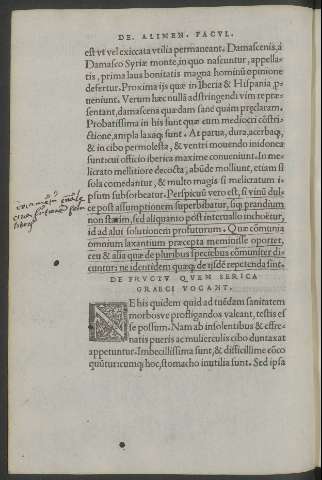 DE ALIMEN. FACVL.
est vt vel exiccata vtilia permaneant. Damascenis, à
Damasco Syriæ monte, in quo nascuntur, appella-
tis, prima laus bonitatis magna hominũ opinione
defertur. Proxima ijs quæ in Iberia & Hispania, p-
ueniunt. Verum hæc nullã adstringendi vim repræ-
sentant, damascena quædam sanè quàm præclaram.
Probatissima in his sunt quæ cum mediocri cõstri-
ctione, ampla laxaq; sunt. At parua, dura, acerbaq;
& in cibo permolesta, & ventri mouendo inidonea
sunt: cui officio iberica maxime conueniunt. In me-
licrato mellitiore decocta, abũde molliunt, etiam si
sola comedantur, & multo magis si melicratum i-
psum subsorbeatur. Perspicuũ vero est, si vinũ dul-
ce post assumptionem superbibatur, siq; prandium
non statim, sed aliquanto pòst interuallo inchoẽtur,
id ad alui solutionem profuturum. Quæ cõmunia
omnium laxantium præcepta meminisse oportet,
ceu & alia quæ de pluribus speciebus cõmuniter di-
cuntur: ne identidem quæq; de ijsdẽ repetenda sint.
DE FRVCTV QVEM SERICA
GRAECI VOCANT.
NE his quidem quid ad tuẽdam sanitatem
morbosve profligandos valeant, testis es
se possum. Nam ab insolentibus & effre-
natis pueris ac mulierculis cibo duntaxat
appetuntur. Imbecillissima sunt, & difficillime cõco
quũtur: cumq; hoc, stomacho inutilia sunt. Sed ipsa